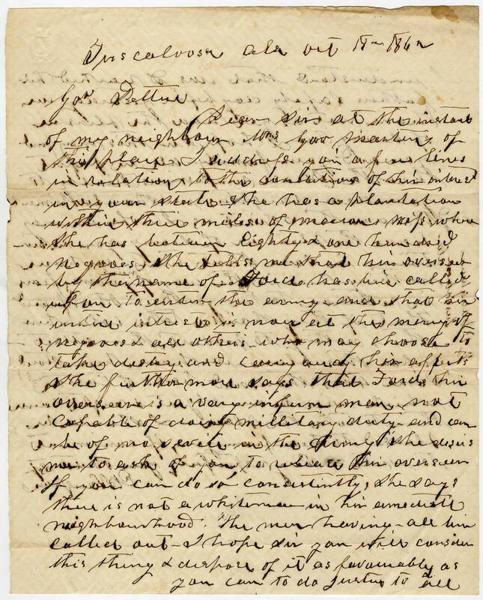 Tuscaloosa ala oct 18th 1862
Gov Pettus
Dear Sir at the instance
of my neighbour Mrs Gov Martin of
this place I address you a few lines
in relation to the condition of her interest
in your State She has a plantation
within three miles of macon Miss where
She has between Eighty & one hundred
Negroes. She tells me that her overseer
by the name of Ford has bin called
upon to enter the army and that her
intire interest is now at the mercy of
negroes & all others who may choose to
take destroy and carry away her effects
She further more says that Ford her
overseer is a very infirm man not
Capable of doing military duty and can
be of no service in the army She desires
me to ask of you to release her overseer
if you can do so consistently, She says
there is not a white man in her immediate
neighbourhood. The men having all bin
called out - I hope Sir you will consider
this thing & dispose of it as favourably as
you can to do Justice to all